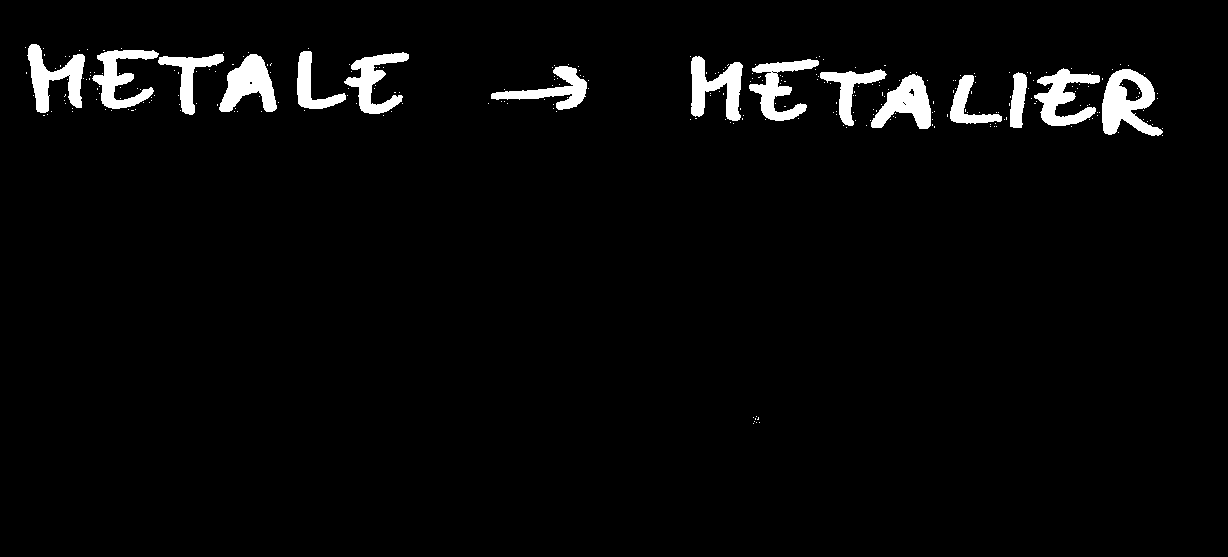 METALE → METALIER